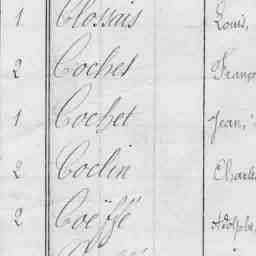 1 Clossais Louis,
2 Coches Franço
1 Cochet Jean,
2 Coclin Charle
2 Coëffé Adolphe